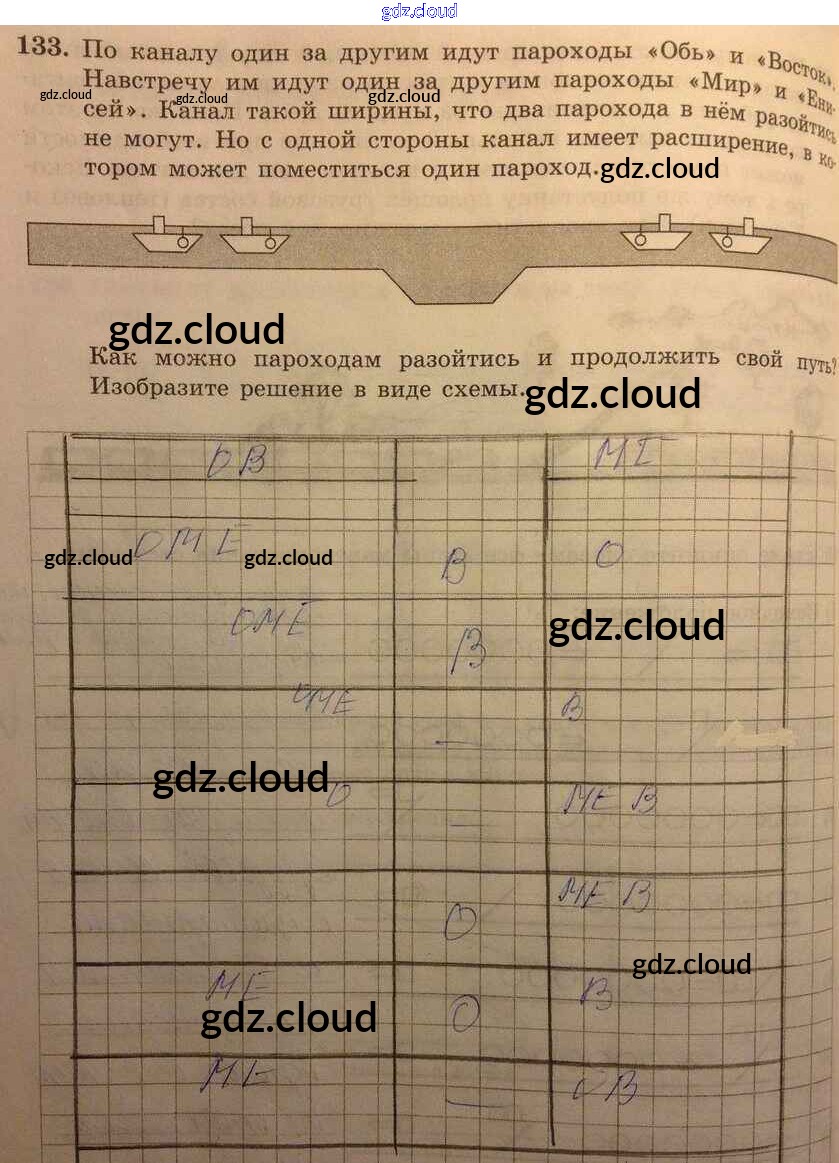 gdz.cloud
133. По каналу один за другим идут пароходы «Обь» и «Восток».
Навстречу им идут один за другим пароходы «Мир» и «Ени-
gdz.cloud gdz.cloud gdz.cloud
сей». Канал такой ширины, что два парохода в нём разойтись
не могут. Но с одной стороны канал имеет расширение, в ко-
тором может поместиться один пароход.
gdz.cloud
gdz.cloud
Как можно пароходам разойтись и продолжить свой путь?
Изобразите решение в виде схемы.
gdz.cloud
ОВ МЕ
ОМЕ В О
gdz.cloud gdz.cloud
ОМЕ В
gdz.cloud
ОМЕ — В
gdz.cloud
О — МЕ В
О МЕ В
gdz.cloud
МЕ О В
gdz.cloud
МЕ — ОВ